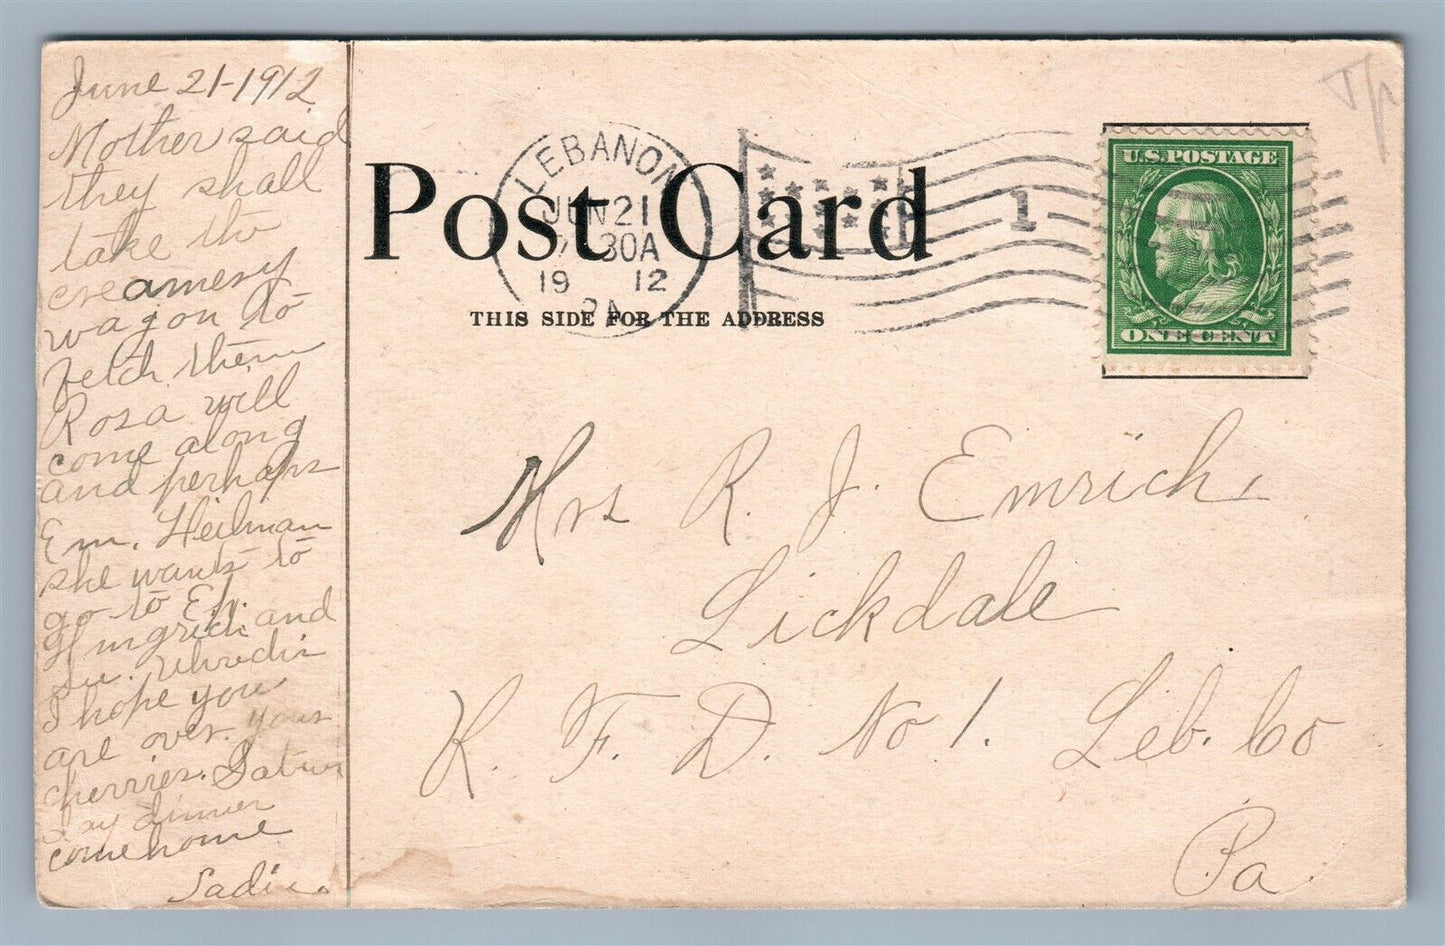 June 21-1912
Mother said
they shall
take the
creamery
wagon to
fetch them
Rosa will
come along
and perhaps
Em. Heilman
she wants to
go to Eph.
Hungrich and
I hope you
are over your
cherries. Satur
day dinner
come home
Sadie.
Post Card
THIS SIDE FOR THE ADDRESS
LEBANON
JUN 21
30A
19 12
PA
1
U.S. POSTAGE
ONE CENT
Mrs R. J. Emrich,
Lickdale
R. F. D. No 1. Leb. Co
Pa.